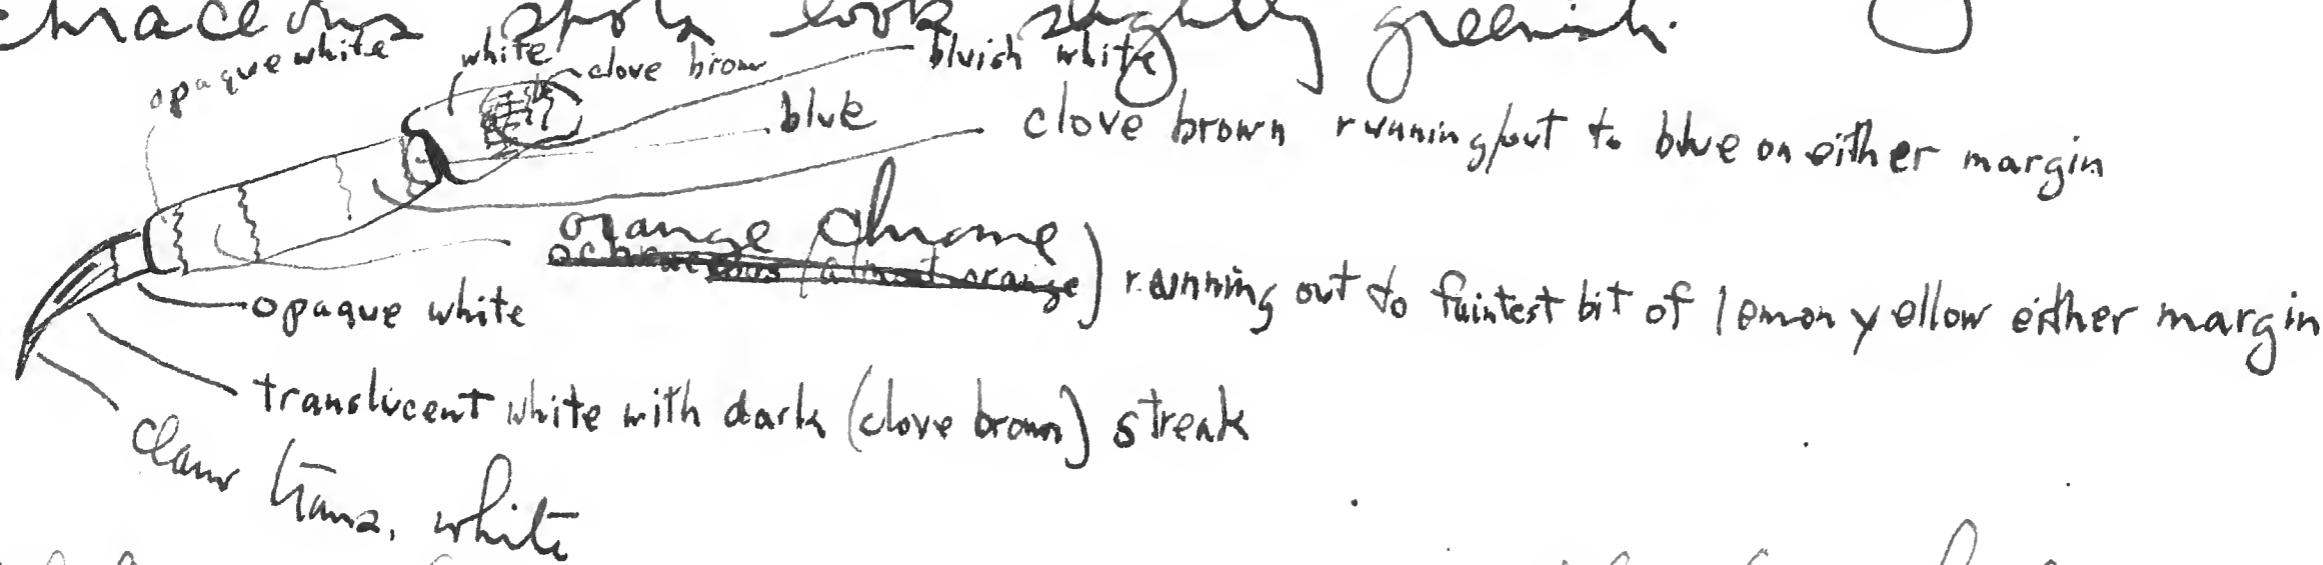 ochraceous spots look slightly greenish.
opaque white
white
clove brown
bluish white
blue
clove brown running out to blue on either margin
orange chrome
ochraceous (almost orange) running out to faintest bit of lemon yellow either margin
opaque white
translucent white with dark (clove brown) streak
claw trans. white